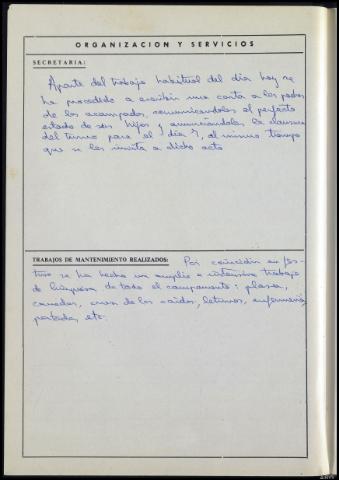 ORGANIZACION Y SERVICIOS
SECRETARIA:
Aparte del trabajo habitual del día hoy se
ha procedido a escribir una carta a los padres
de los acampados, comunicándoles el perfecto
estado de sus hijos y anunciándoles la clausura
del turno para el día 7, al mismo tiempo
que se les invita a dicho acto
TRABAJOS DE MANTENIMIENTO REALIZADOS: Por coincidir en
se ha hecho un amplio e intensivo trabajo
de limpieza de todo el campamento: plaza,
comedor, cruz de los caídos, letrinas, enfermería,
portada, etc.